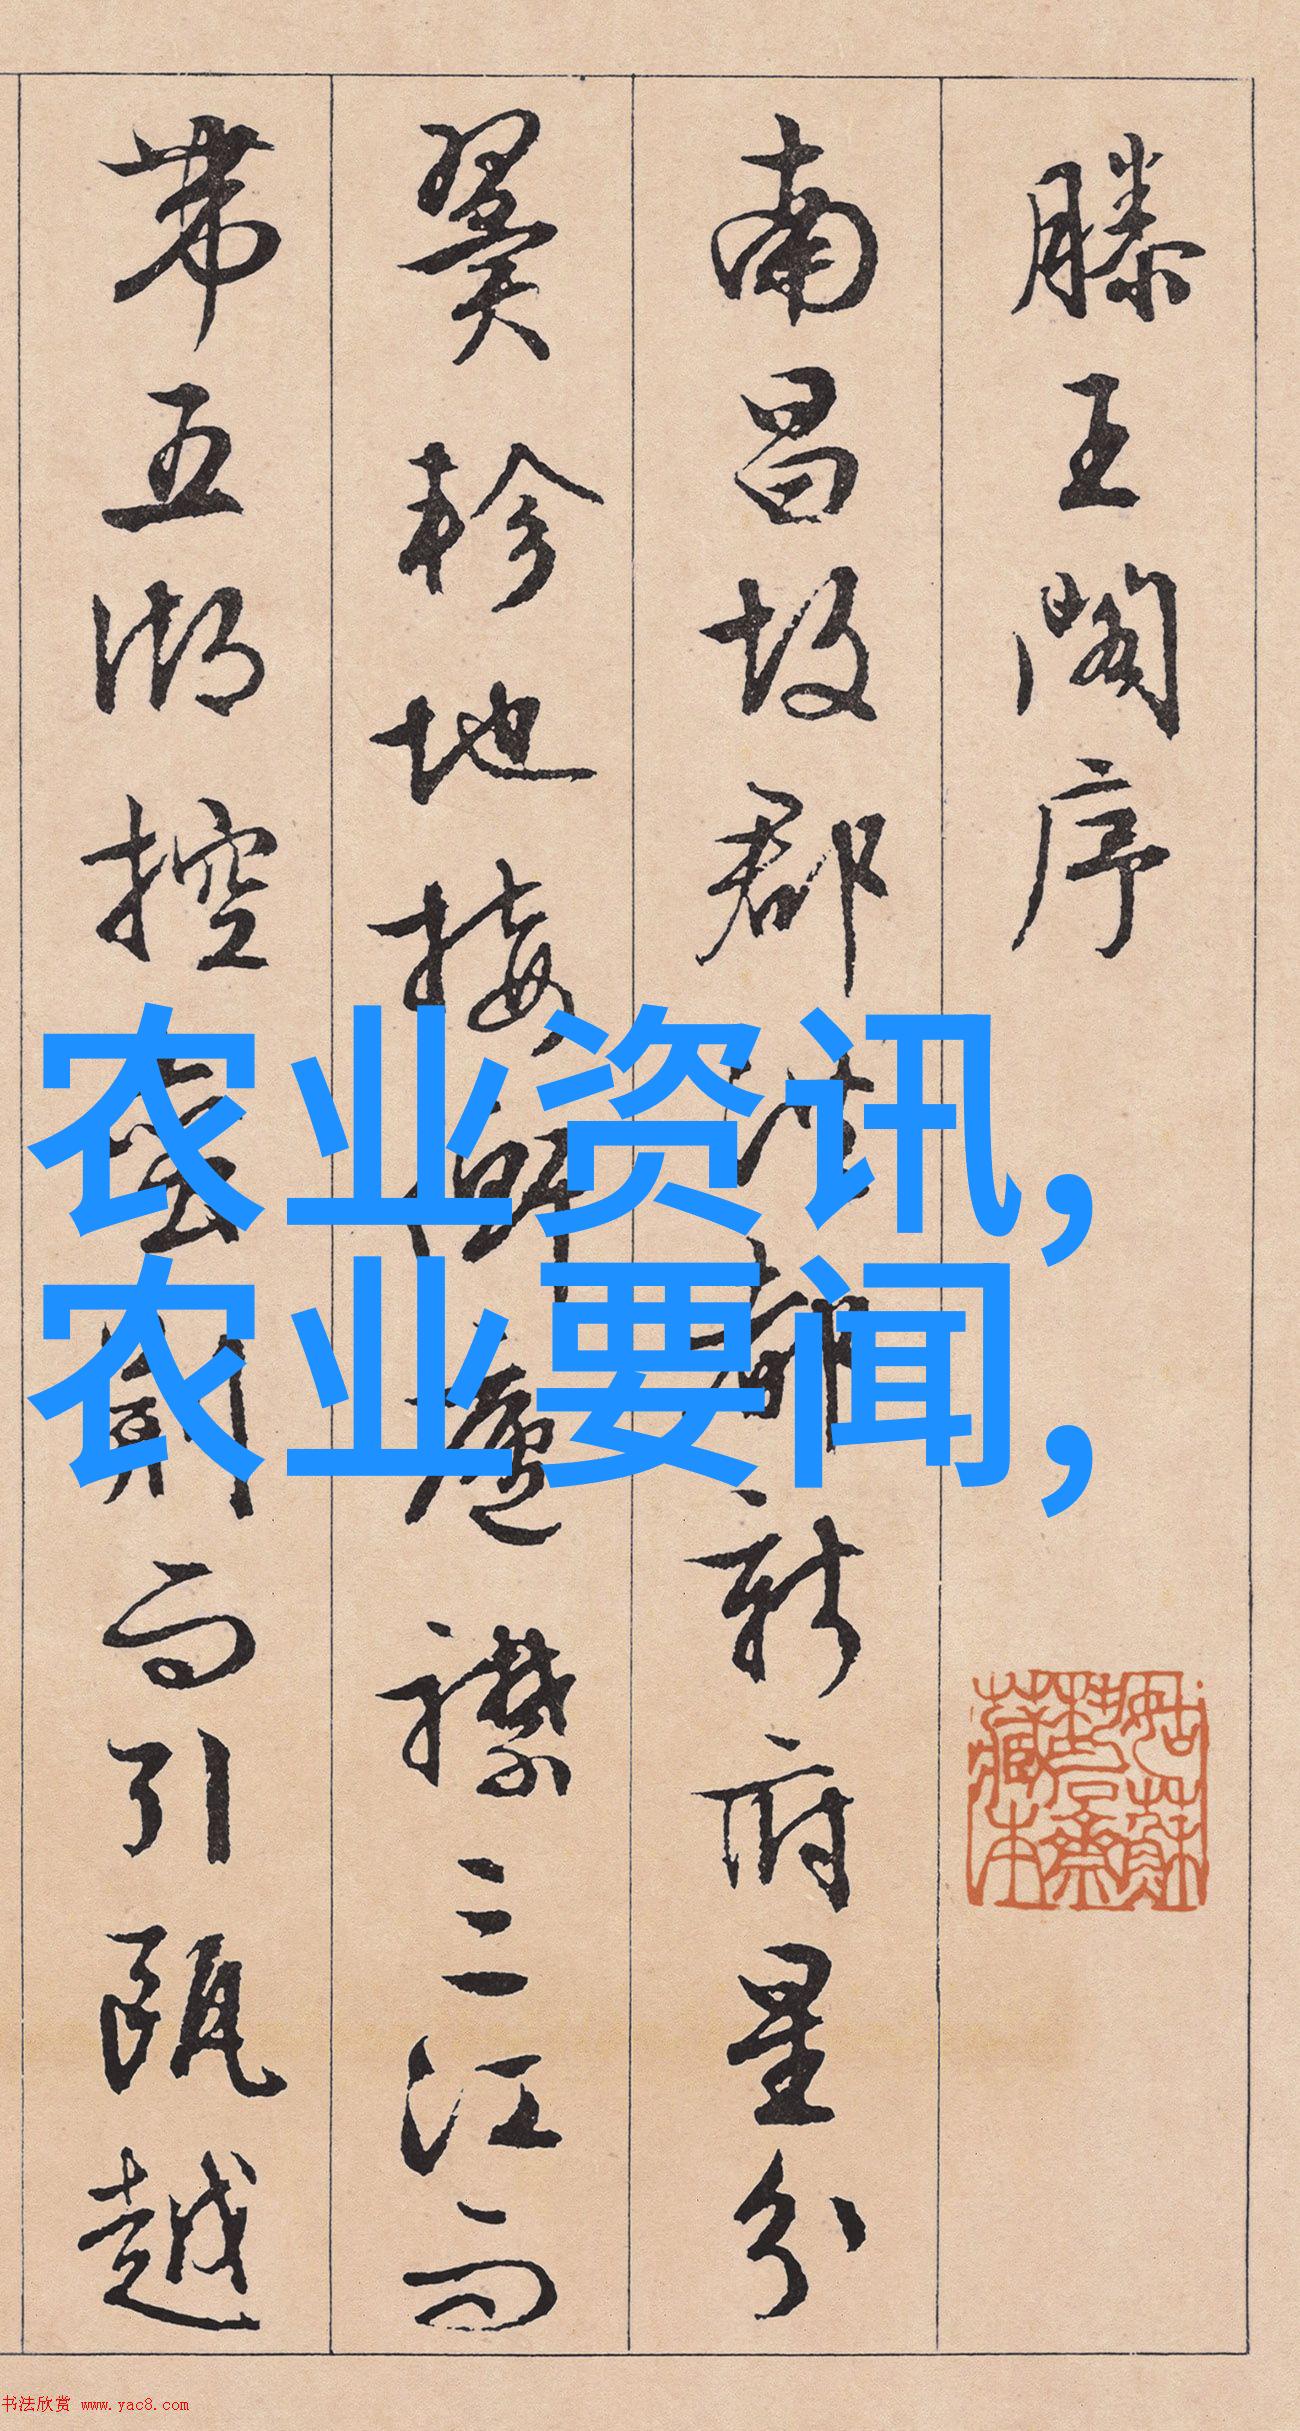 滕王閣序
南昌故郡洪都新府星分
翼軫地接衡廬襟三江而
帶五湖控蠻荊而引甌越
农业资讯,
农业要闻,
书法欣赏 www.yac8.com